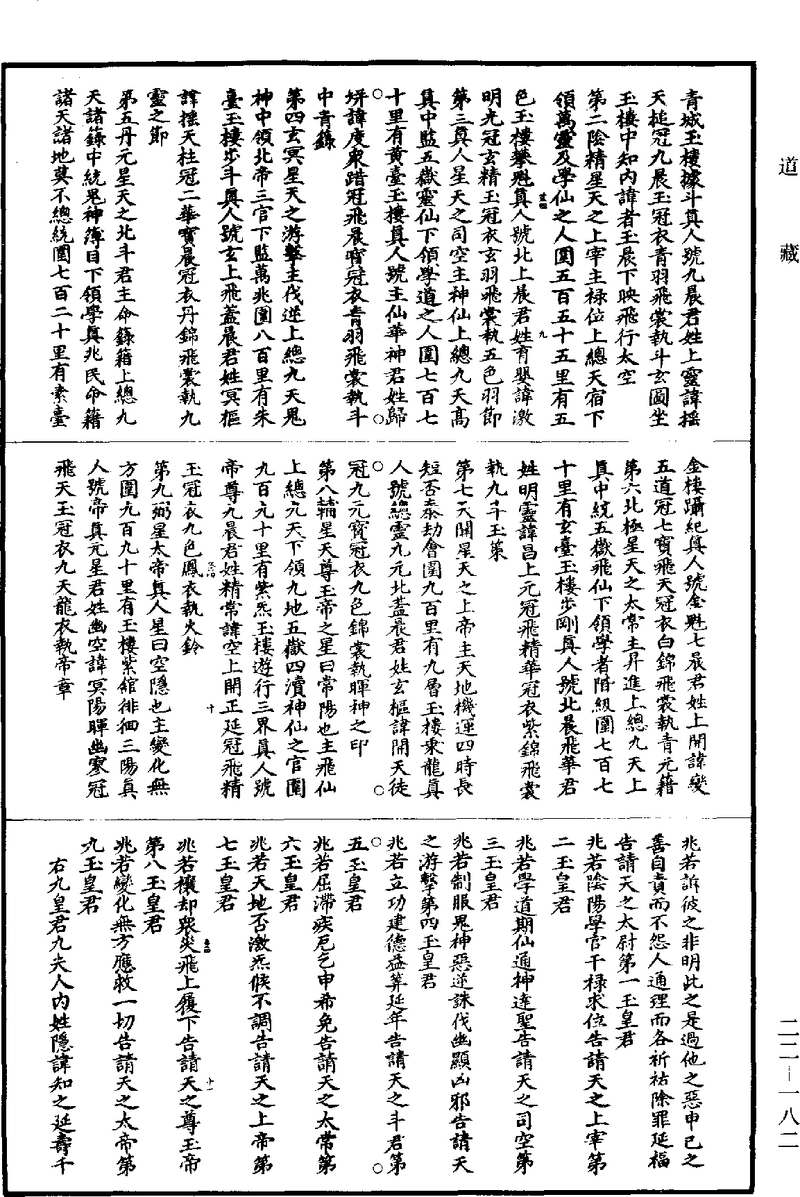 道藏
青城玉樓據斗真人號九晨君姓上靈諱搖
天槌冠九晨玉冠衣青羽飛裳執斗玄圖坐
玉樓中知內諱者玉晨下映飛行太空
第二陰精星天之上宰主祿位上總天宿下
領萬靈及學仙之人圓五百五十五里有五
色玉樓攀魁真人號北上晨君姓育嬰諱激
明光冠玄精玉冠衣玄羽飛裳執五色羽節
第三真人星天之司空主神仙上總九天高
真中監五嶽靈仙下領學道之人圓七百七
十里有黄臺玉樓真人號主仙華神君姓歸
姘諱度衆踖冠飛晨寳冠衣青羽飛裳執斗
中青籙
第四玄冥星天之游擊主伐逆上總九天鬼
神中領北帝三官下監萬兆圓八百里有朱
臺玉樓步斗真人號玄上飛蓋晨君姓冥樞
諱摇天柱冠二華寳晨冠衣丹錦飛裳執九
靈之節
第五丹元星天之北斗君主命籙籍上總九
天諸籙中統鬼神簿目下領學真兆民命籍
諸天諸地莫不總統圓七百二十里有素臺
金樓躡紀真人號金魁七晨君姓上開諱變
五道冠七寳飛天冠衣白錦飛裳執青元籍
第六北極星天之太常主昇進上總九天上
真中統五嶽飛仙下領學者階級圓七百七
十里有玄臺玉樓步剛真人號北晨飛華君
姓明靈諱昌上元冠飛精華冠衣紫錦飛裳
執九斗玉策
第七天關星天之上帝主天地機運四時長
短否泰劫會圓九百里有九層玉樓乘龍真
人號總靈九元北蓋晨君姓玄樞諱開天徒
冠九元寳冠衣九色錦裳執暉神之印
第八輔星天尊玉帝之星曰常陽也主飛仙
上總元天下領九地五嶽四瀆神仙之官圓
九百九十里有紫炁玉樓遊行三界真人號
帝尊九晨君姓精常諱空上開正延冠飛精
玉冠衣九色鳳衣執火鈴
第九弼星太帝真人星曰空隱也主變化無
方圓九百九十里有玉樓紫舘徘徊三陽真
人號帝真元星君姓幽空諱冥陽暉幽寥冠
飛天玉冠衣九天龍衣執帝章
兆若訴彼之非明此之是過他之惡申已之
善自責而不怨人通理而各祈祜除罪延福
告請天之太尉第一玉皇君
兆若陰陽學官干祿求位告請天之上宰第
二玉皇君
兆若學道期仙通神達聖告請天之司空第
三玉皇君
兆若制服鬼神惡逆誅伐幽顯凶邪告請天
之游擊第四玉皇君
兆若立功建德益筭延年告請天之斗君第
五玉皇君
兆若屈滯疾厄乞申希免告請天之太常第
六玉皇君
兆若天地否激炁候不調告請天之上帝第
七玉皇君
兆若禳却衆災飛上履下告請天之尊玉帝
第八玉皇君
兆若變化無方應救一切告請天之太帝第
九玉皇君
右九皇君九夫人内姓隱諱知之延壽千
二二—一八二